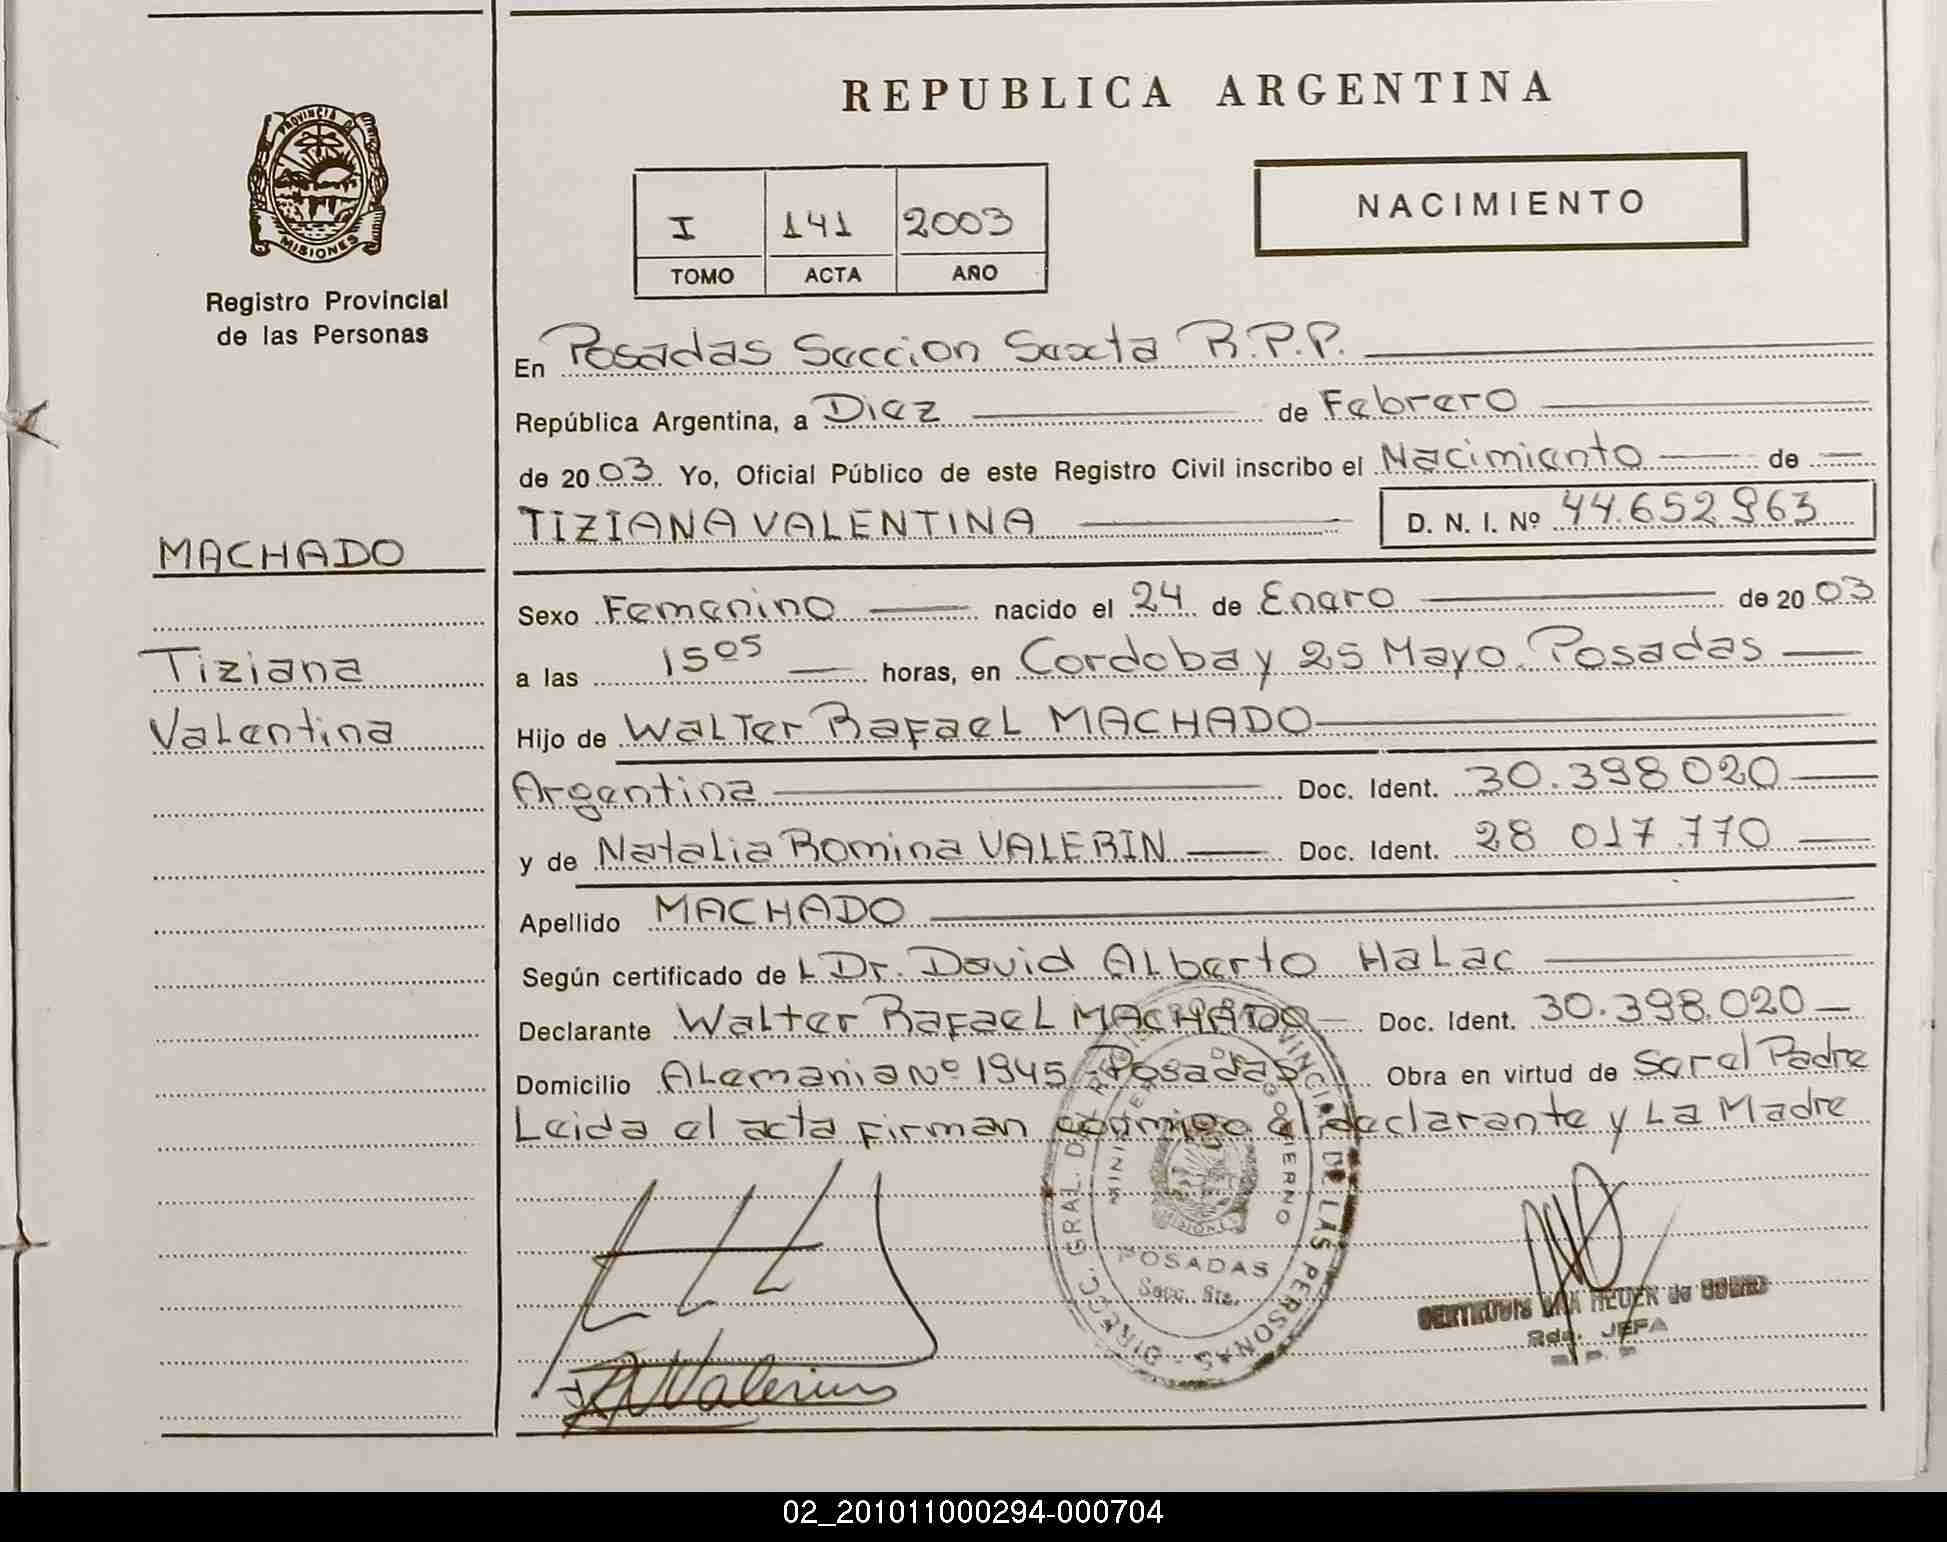 REPUBLICA ARGENTINA
PROVINCIA DE
MISIONES
Registro Provincial
de las Personas
NACIMIENTO
I 141 2003
TOMO ACTA AÑO
En Posadas Seccion Sexta R.P.P.
República Argentina, a Diez de Febrero
de 2003 Yo, Oficial Público de este Registro Civil inscribo el Nacimiento de
TIZIANA VALENTINA D. N. I. Nº 44.652.963
MACHADO
Tiziana
Valentina
Sexo Femenino nacido el 24 de Enero de 2003
a las 15 05 horas, en Cordoba y 25 Mayo. Posadas
Hijo de Walter Rafael MACHADO
Argentina Doc. Ident. 30.398.020
y de Natalia Romina VALERIN Doc. Ident. 28 017.770
Apellido MACHADO
Según certificado de L Dr. David Alberto Halac
Declarante Walter Rafael MACHADO Doc. Ident. 30.398.020
Domicilio Alemania Nº 1945 - Posadas Obra en virtud de Ser el Padre
Leida el acta firman conmigo el declarante y La Madre
DIRECC. GRAL. DEL REGISTRO PROVINCIAL DE LAS PERSONAS
MINISTERIO DE GOBIERNO
MISIONES
POSADAS
Secc. 6ta.
JEFA
02_201011000294-000704